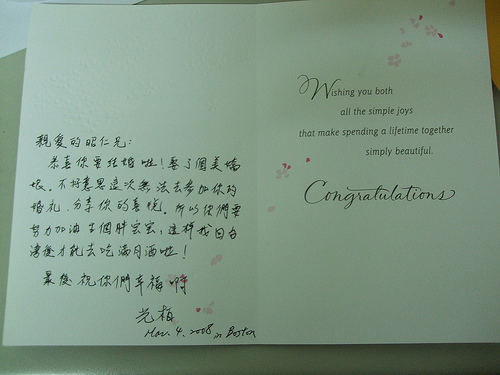 親愛的昭仁兄：
恭喜你要結婚啦！娶了個美嬌
娘。不好意思這次無法去參加你的
婚禮，分享你的喜悅。所以你們要
努力加油生個胖寶寶，這樣我回台
灣後才能去吃滿月酒啦！
最後祝你們幸福
光柏
Mar. 4. 2008 in Boston
Wishing you both
all the simple joys
that make spending a lifetime together
simply beautiful.
Congratulations